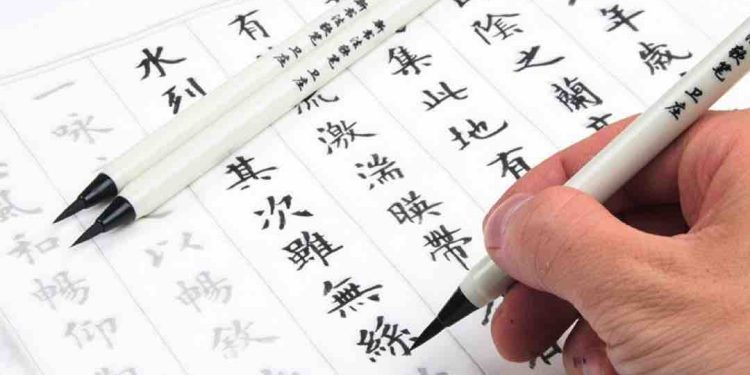 年歲
陰之蘭
集此地有
有流激湍暎帶
水列其次雖無絲
一咏以暢敘
風和暢仰